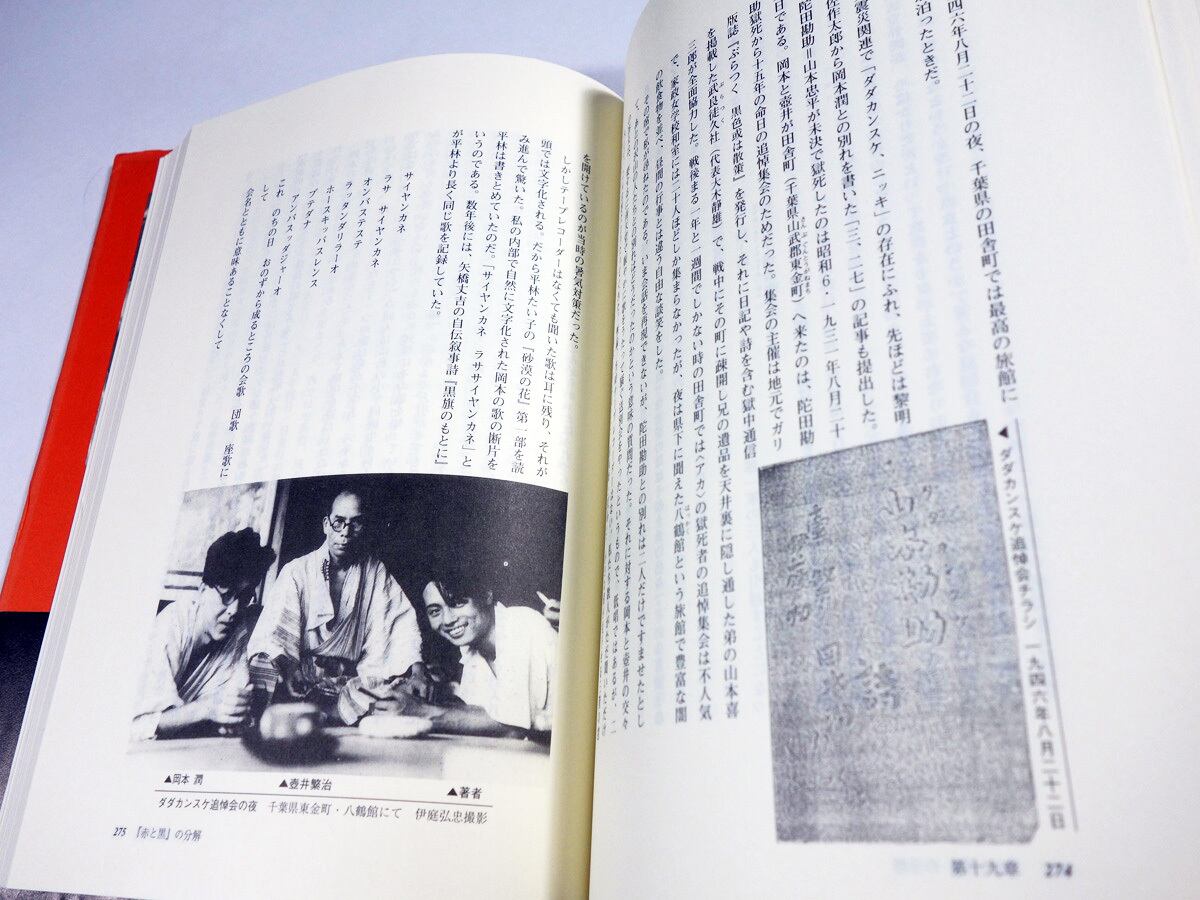 四六年八月二十二日の夜、千葉県の田舎町では最高の旅館に
泊ったときだ。
震災関連で「ダダカンスケ、ニッキ」の存在にふれ、先ほどは黎明
佐作太郎から岡本潤との別れを書いた「三、二七」の記事も提出した。
陀田勘助＝山本忠平が未決で獄死したのは昭和6・一九三一年八月二十
日である。岡本と壺井が田舎町（千葉県山武郡東金町）へ来たのは、陀田勘
助獄死から十五年の命日の追悼集会のためだった。集会の主催は地元でガリ
版誌『ぶらつく、黒色或は散策』を発行し、それに日記や詩を含む獄中通信
を掲載した武良徒久社（代表大木静雄）で、戦中にその町に疎開し兄の遺品を天井裏に隠し通した弟の山本喜
三郎が全面協力した。戦後まる一年と一週間でしかない時の田舎町では〈アカ〉の獄死者の追悼集会は不人気
で、家政女学校和室には二十人ほどしか集まらなかったが、夜は県下に聞えた八鶴館という旅館で豊富な闇
の飲食物を並べ、昼間の行事とは違う自由な談笑をした。
その席で私が尋ねたのである。いま会話を再現できないが、陀田勘助との別れは二人だけですませたとし
▲ダダカンスケ追悼会チラシ 一九四六年八月二十二日
第十九章 274
を開けているのが当時の暑気対策だった。
しかしテープレコーダーはなくても聞いた歌は耳に残り、それが
頭では文字化される。だから平林たい子の『砂漠の花』第一部を読
み進んで驚いた。私の内部で自然に文字化された岡本の歌の断片を
平林は書きとめていたのだ。「サイヤンカネ ラササイヤンカネ」と
いうのである。数年後には、矢橋丈吉の自伝叙事詩『黒旗のもとに』
が平林より長く同じ歌を記録していた。
サイヤンカネ
ラサ サイヤンカネ
オンバステステ
ラッタンダリラーオ
ホースキッパスレンス
プテダナ
アンバスッダジャーオ
これ のちの日 おのずから成るところの会歌 団歌 座歌に
して
会名とともに意味あることなくして
▲岡本 潤
▲壺井繁治
▲著者
ダダカンスケ追悼会の夜 千葉県東金町・八鶴館にて 伊庭弘忠撮影
275 『赤と黒』の分解